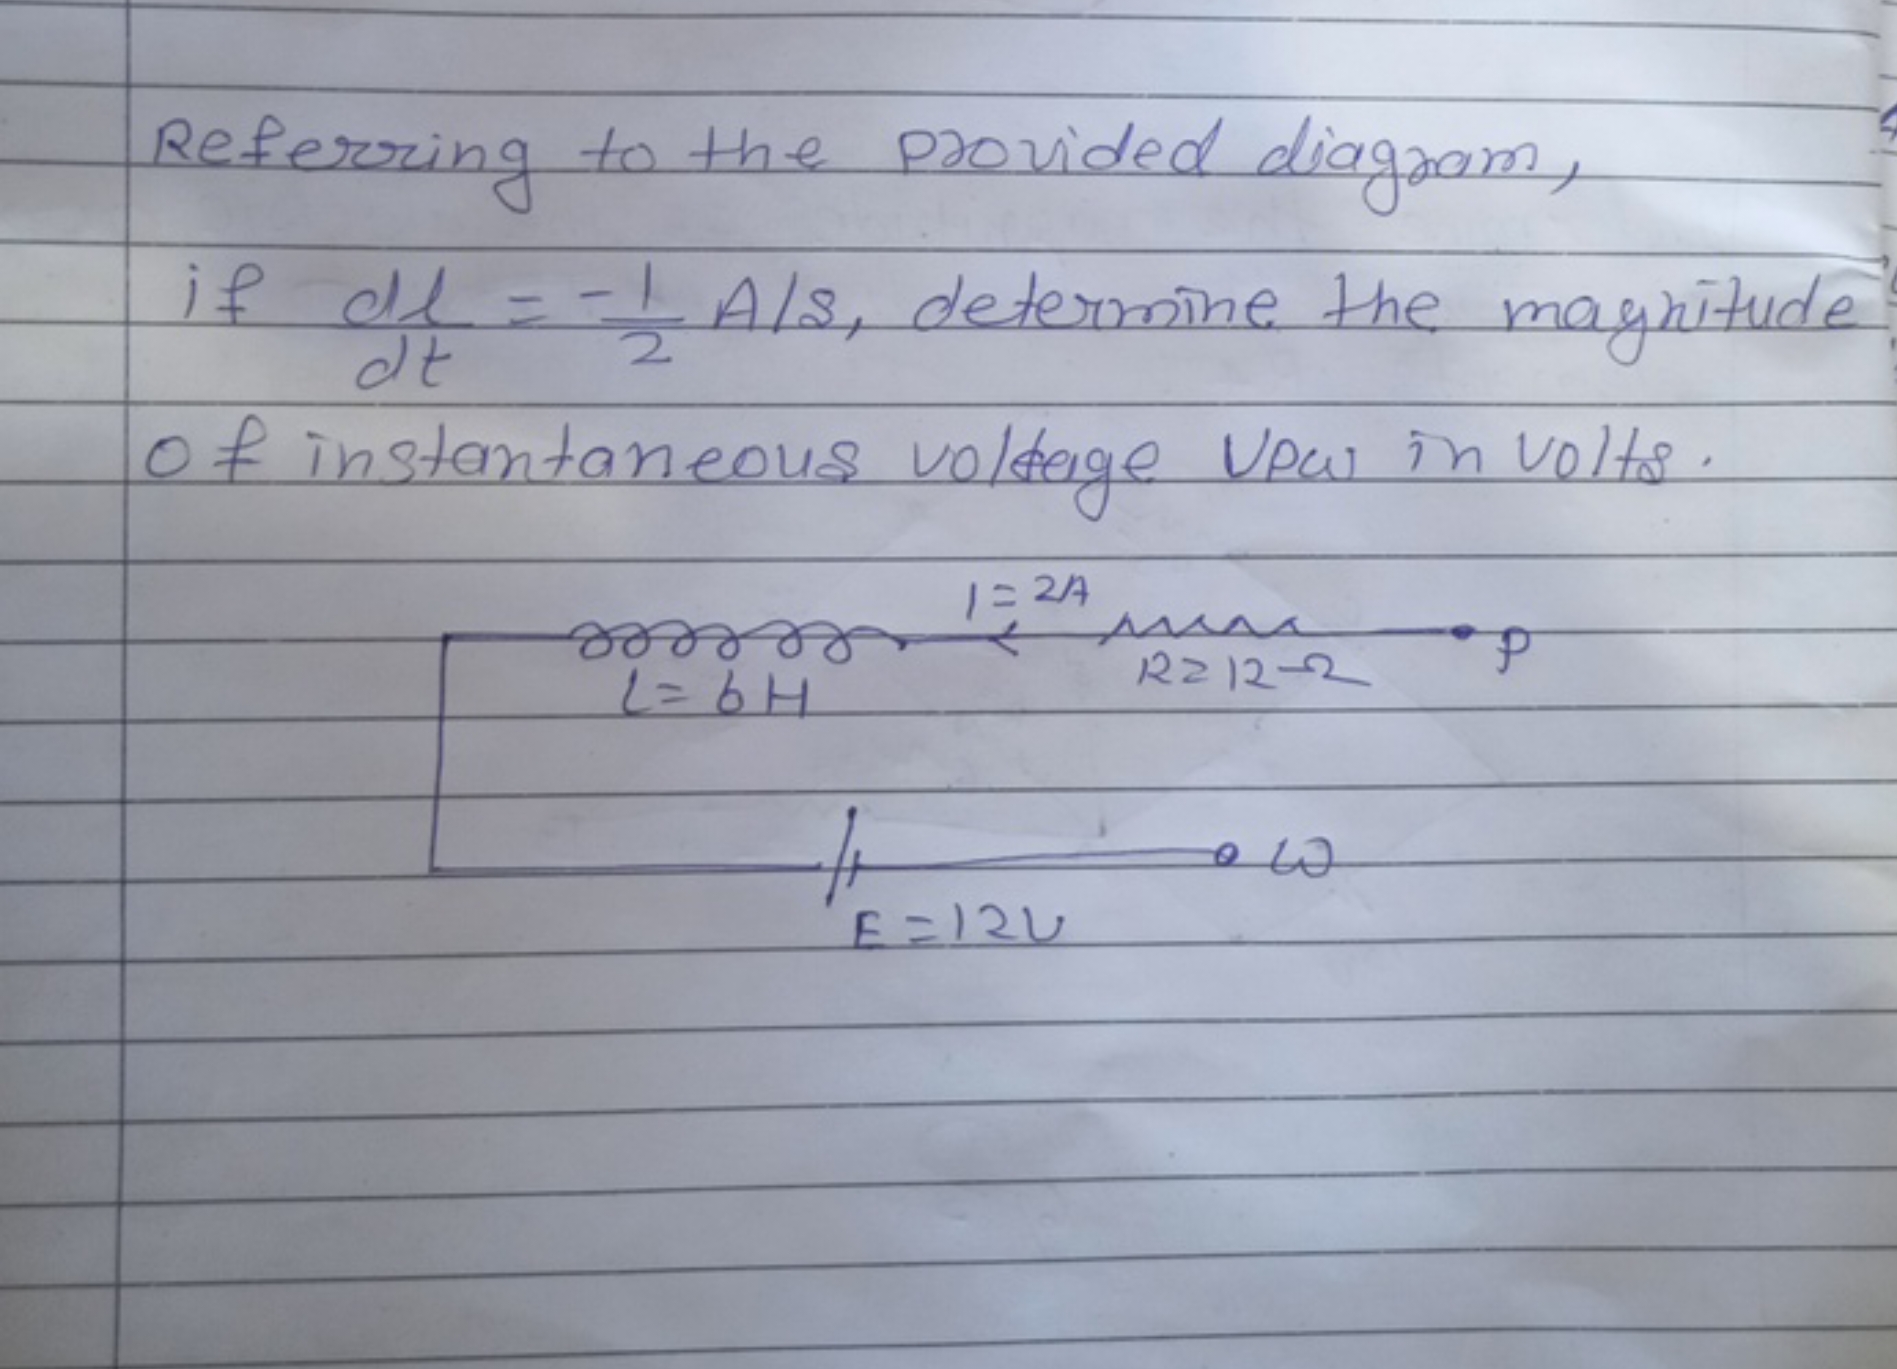 Referring to the provided diagram,
if dI/dt = -1/2 A/s, determine the magnitude
of instantaneous voltage VPW in volts.
I = 2A
L = 6H
R = 12Ω
P
W
E = 12V